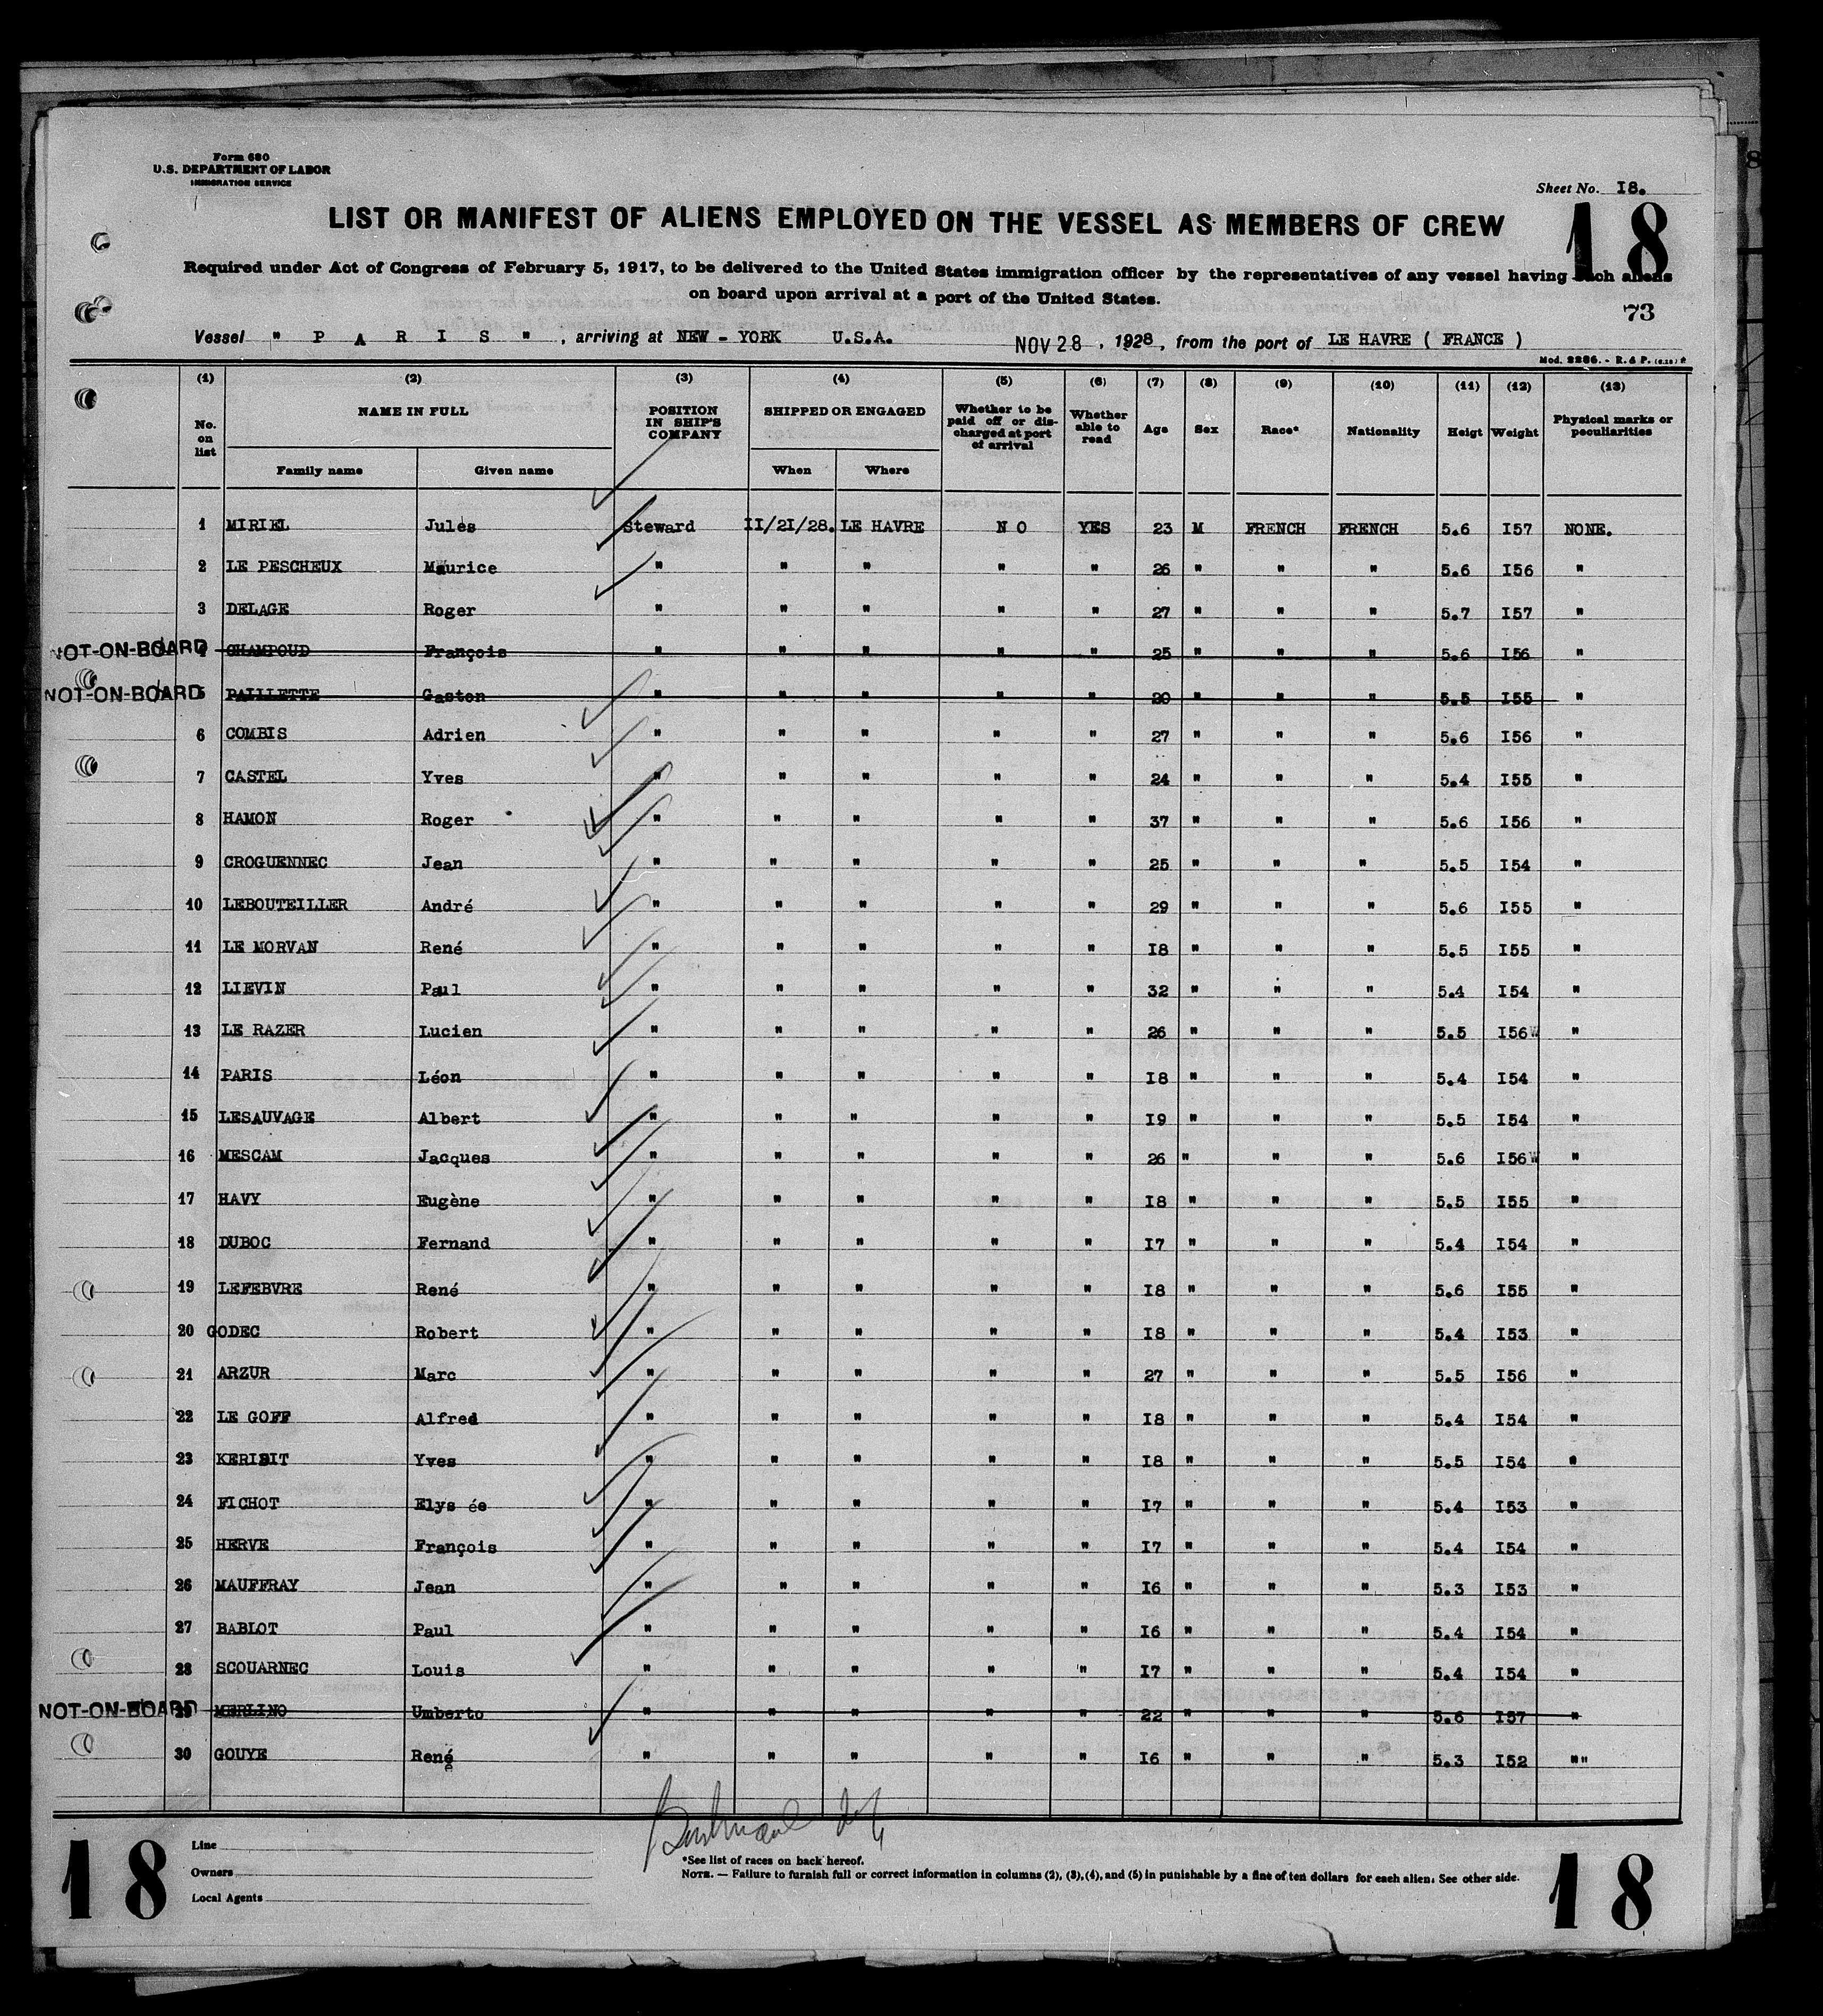 Form 680
U.S. DEPARTMENT OF LABOR
IMMIGRATION SERVICE
Sheet No. I8.
18
LIST OR MANIFEST OF ALIENS EMPLOYED ON THE VESSEL AS MEMBERS OF CREW
Required under Act of Congress of February 5, 1917, to be delivered to the United States immigration officer by the representatives of any vessel having such aliens
on board upon arrival at a port of the United States.
73
Vessel " P A R I S " , arriving at NEW - YORK U.S.A. NOV 28 , 1928 , from the port of LE HAVRE ( FRANCE )
Mod. 2286. - R. & P.
(1) (2) (3) (4) (5) (6) (7) (8) (9) (10) (11) (12) (13)
No. on list NAME IN FULL POSITION IN SHIP'S COMPANY SHIPPED OR ENGAGED Whether to be paid off or discharged at port of arrival Whether able to read Age Sex Race* Nationality Heigt Weight Physical marks or peculiarities
Family name Given name When Where
1 MIRIEL Jules Steward II/2I/28. LE HAVRE N O YES 23 M FRENCH FRENCH 5.6 I57 NONE.
2 LE PESCHEUX Maurice " " " " " 26 " " " 5.6 I56 "
3 DELAGE Roger " " " " " 27 " " " 5.7 I57 "
NOT-ON-BOARD 4 CHAMPOUD François " " " " " 25 " " " 5.6 I56 "
NOT-ON-BOARD 5 PAILLETTE Gaston " " " " " 20 " " " 5.5 I55 "
6 COMBIS Adrien " " " " " 27 " " " 5.6 I56 "
7 CASTEL Yves " " " " " 24 " " " 5.4 I55 "
8 HAMON Roger " " " " " 37 " " " 5.6 I56 "
9 CROGUENNEC Jean " " " " " 25 " " " 5.5 I54 "
10 LEBOUTEILLER André " " " " " 29 " " " 5.6 I55 "
11 LE MORVAN René " " " " " I8 " " " 5.5 I55 "
12 LIEVIN Paul " " " " " 32 " " " 5.4 I54 "
13 LE RAZER Lucien " " " " " 26 " " " 5.5 I56 "
14 PARIS Léon " " " " " I8 " " " 5.4 I54 "
15 LESAUVAGE Albert " " " " " I9 " " " 5.5 I54 "
16 MESCAM Jacques " " " " " 26 " " " 5.6 I56 "
17 HAVY Eugène " " " " " I8 " " " 5.5 I55 "
18 DUBOC Fernand " " " " " I7 " " " 5.4 I54 "
19 LEFEBVRE René " " " " " I8 " " " 5.6 I55 "
20 GODEC Robert " " " " " I8 " " " 5.4 I53 "
21 ARZUR Marc " " " " " 27 " " " 5.5 I56 "
22 LE GOFF Alfred " " " " " I8 " " " 5.4 I54 "
23 KERISIT Yves " " " " " I8 " " " 5.5 I54 "
24 FICHOT Elys ée " " " " " I7 " " " 5.4 I53 "
25 HERVE François " " " " " I7 " " " 5.4 I54 "
26 MAUFFRAY Jean " " " " " I6 " " " 5.3 I53 "
27 BABLOT Paul " " " " " I6 " " " 5.4 I54 "
28 SCOUARNEC Louis " " " " " I7 " " " 5.4 I54 "
NOT-ON-BOARD 29 MERLINO Umberto " " " " " 22 " " " 5.6 I57 "
30 GOUYE René " " " " " I6 " " " 5.3 I52 ""
18
Line
Owners
Local Agents
*See list of races on back hereof.
NOTE. — Failure to furnish full or correct information in columns (2), (3), (4), and (5) in punishable by a fine of ten dollars for each alien. See other side.
18